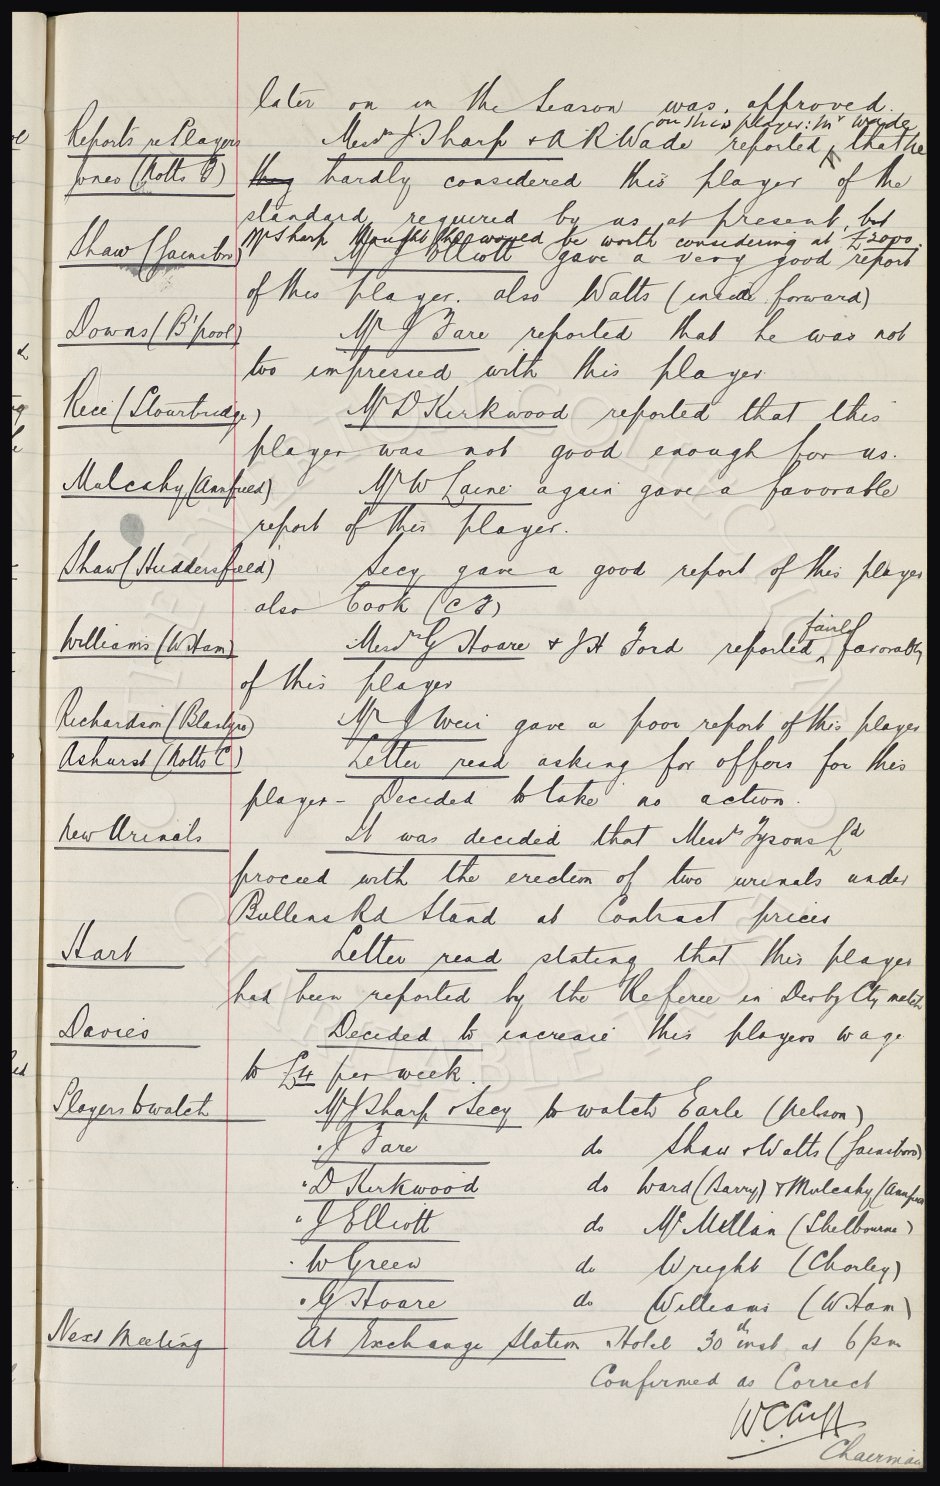 later on in the Season was approved.
on this player: Mr Wade
Reports re Players Messrs J Sharp & A R Wade reported that he
Jones (Notts C) they hardly considered this player of the
standard required by us at present, but
Mr Sharp thought he would be worth considering at £2000.
Shaw (Gainsboro) Mr J Elliott gave a very good report
of this player. also Watts (inside forward)
Downs (B'pool) Mr J Fare reported that he was not
too impressed with this player
Rece (Stourbridge) Mr D Kirkwood reported that this
player was not good enough for us.
Mulcahy (Annfield) Mr W Laine again gave a favorable
report of this player.
Shaw (Huddersfield) Secy gave a good report of this player
also Cook (CF)
fairly
Williams (W Ham) Messrs G Hoare & J H Ford reported favorably
of this player
Richardson (Blantyre) Mr J Weir gave a poor report of this player
Ashurst (Notts C) Letter read asking for offers for this
player – Decided to take no action.
New Urinals It was decided that Messrs Tysons Ld
proceed with the erection of two urinals under
Bullens Rd Stand at Contract prices
Hart Letter read stating that this player
had been reported by the Referee in Derby Cty match
Davies Decided to increase this players wage
to £4 per week.
Players to watch Mr J Sharp & Secy to watch Earle (Nelson)
" J Fare do Shaw & Watts (Gainsboro)
" D Kirkwood do Ward (Barry) & Mulcahy (Annfield
" J Elliott do McMillan (Shelbourne)
" W Green do Wright (Chorley)
" G Hoare do Williams (W Ham)
Next Meeting At Exchange Station Hotel 30th inst at 6 pm
Confirmed as Correct
W C Cuff
Chairman